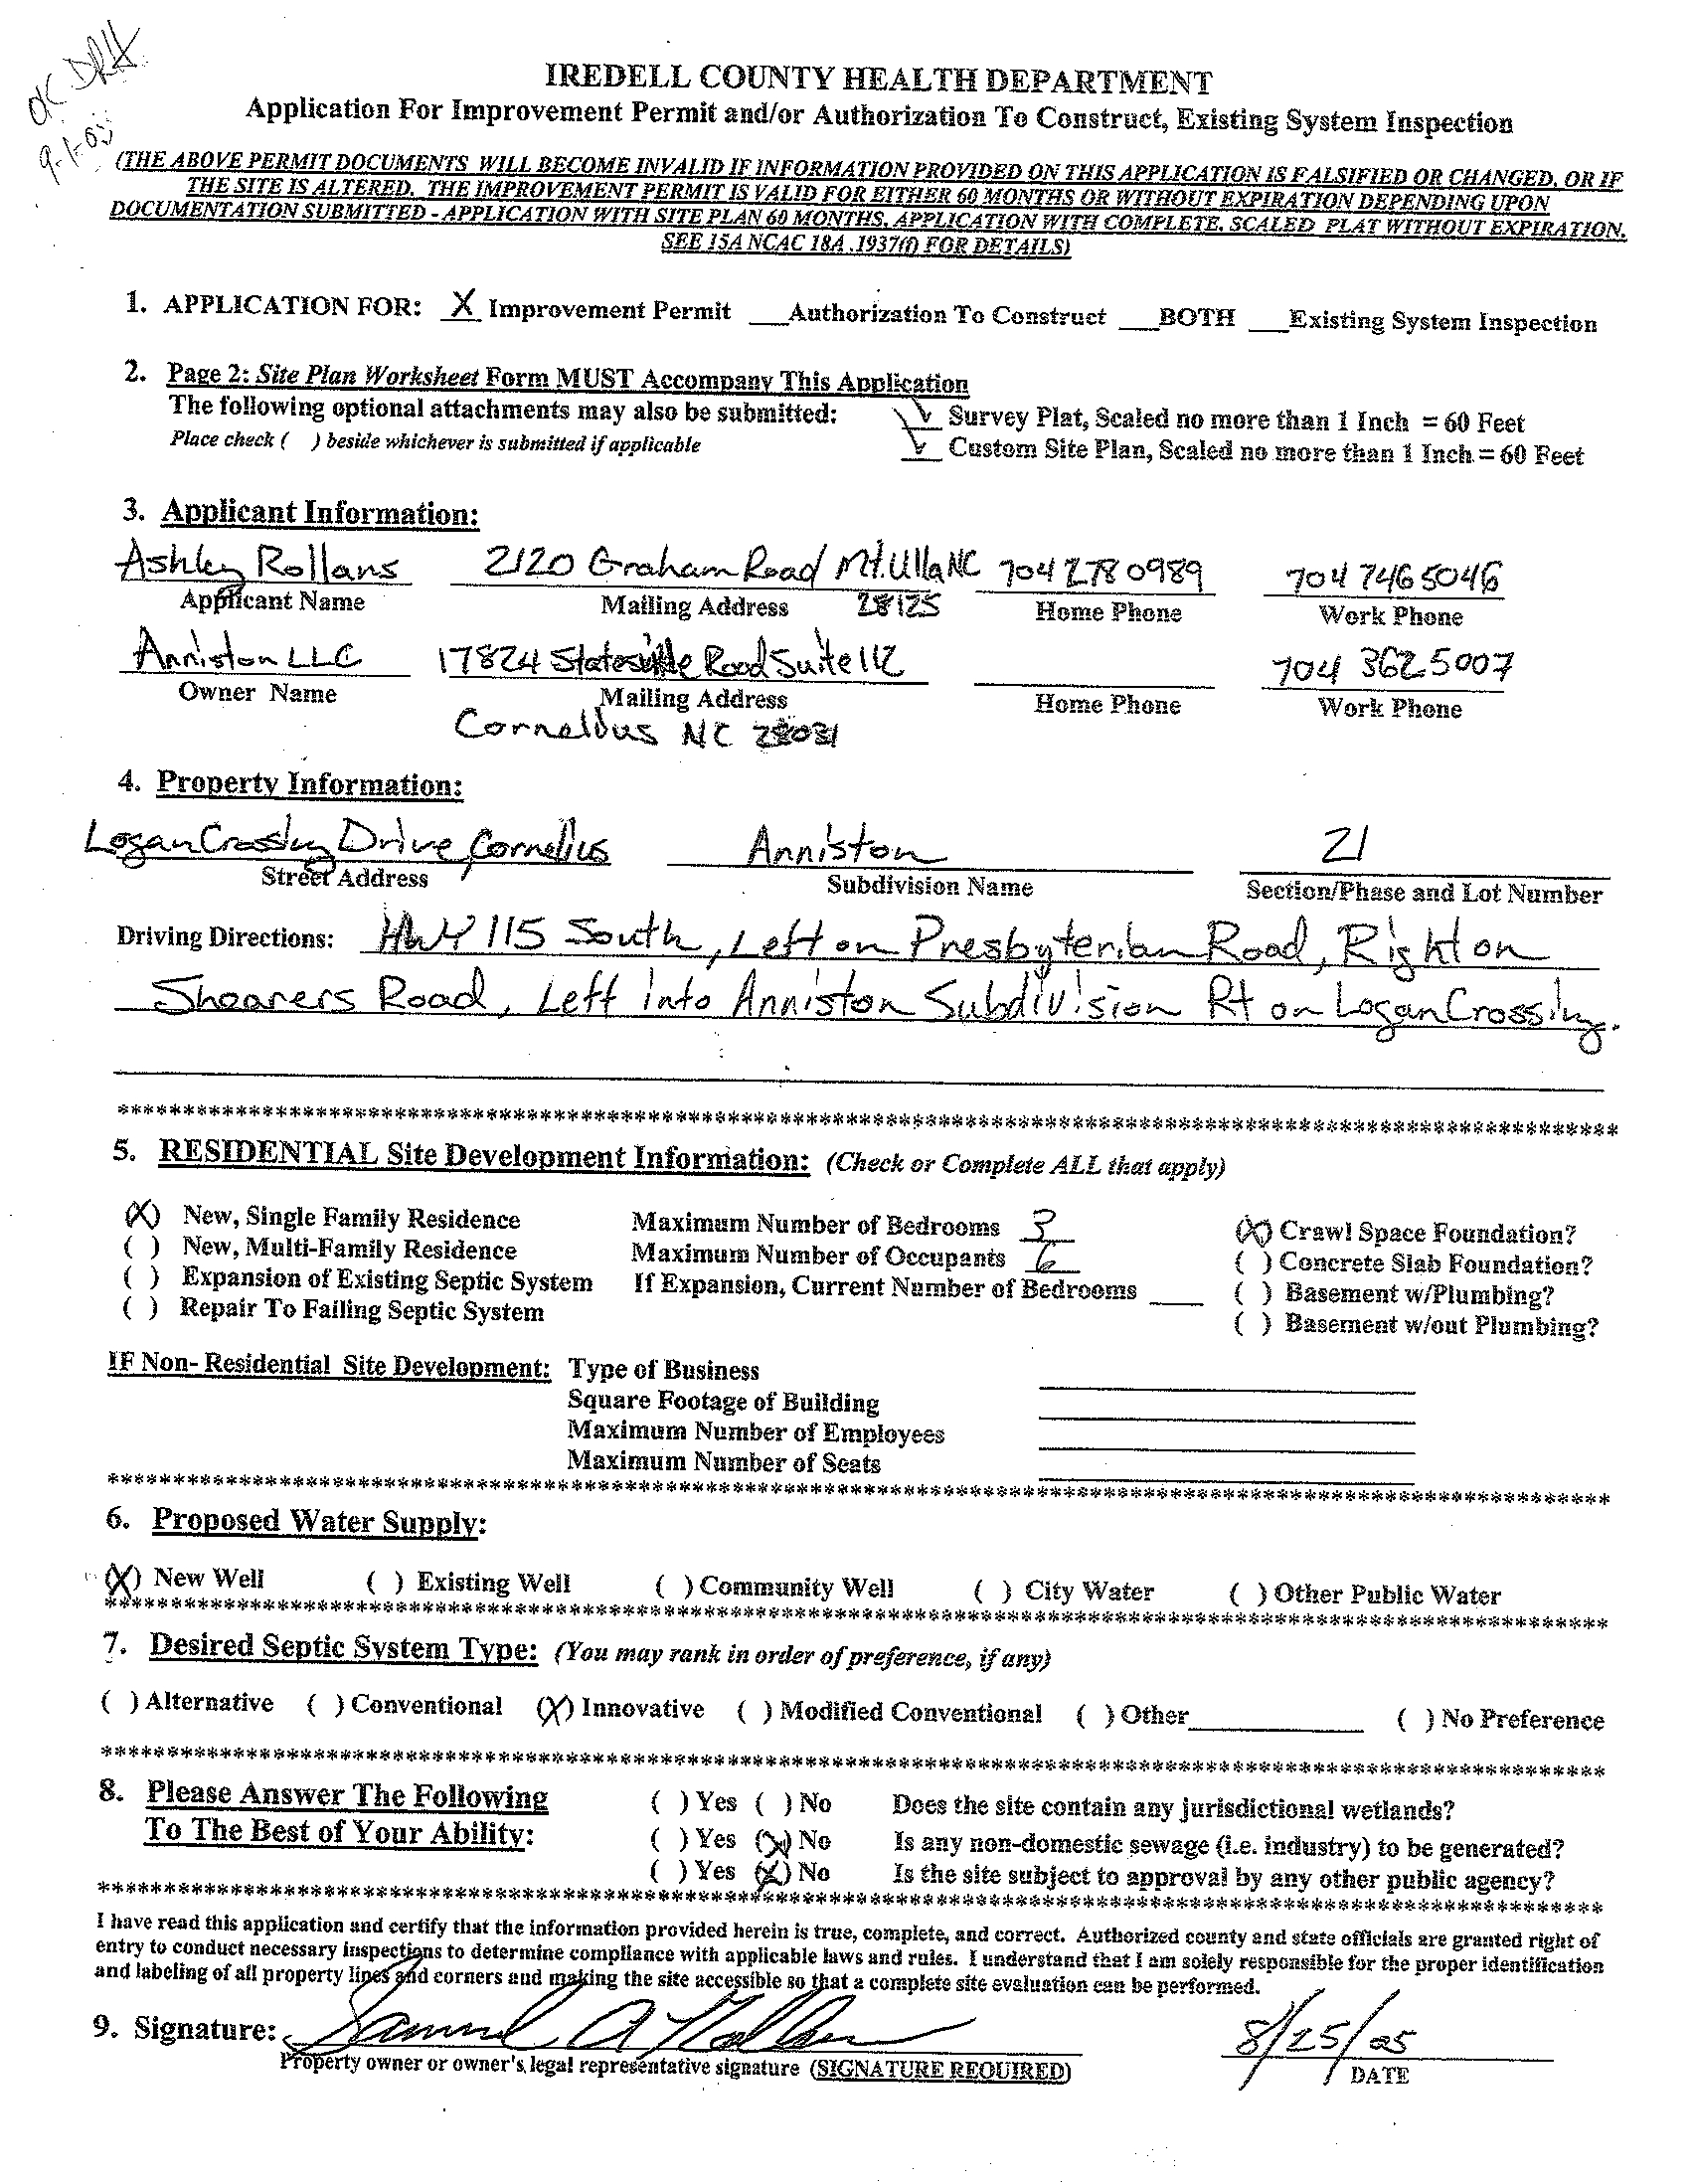 OK DRH
9-1-05
IREDELL COUNTY HEALTH DEPARTMENT
Application For Improvement Permit and/or Authorization To Construct, Existing System Inspection
(THE ABOVE PERMIT DOCUMENTS WILL BECOME INVALID IF INFORMATION PROVIDED ON THIS APPLICATION IS FALSIFIED OR CHANGED, OR IF
THE SITE IS ALTERED. THE IMPROVEMENT PERMIT IS VALID FOR EITHER 60 MONTHS OR WITHOUT EXPIRATION DEPENDING UPON
DOCUMENTATION SUBMITTED - APPLICATION WITH SITE PLAN 60 MONTHS, APPLICATION WITH COMPLETE, SCALED PLAT WITHOUT EXPIRATION.
SEE 15A NCAC 18A .1937(f) FOR DETAILS)
1. APPLICATION FOR: X Improvement Permit ___Authorization To Construct ___BOTH ___Existing System Inspection
2. Page 2: Site Plan Worksheet Form MUST Accompany This Application
The following optional attachments may also be submitted: ✓ Survey Plat, Scaled no more than 1 Inch = 60 Feet
Place check ( ) beside whichever is submitted if applicable ✓ Custom Site Plan, Scaled no more than 1 Inch = 60 Feet
3. Applicant Information:
Ashley Rollans 2120 Graham Road Mt. Ulla NC 704 278 0989 704 746 5046
Applicant Name Mailing Address 28125 Home Phone Work Phone
Anniston LLC 17824 Statesville Road Suite 112 704 362 5007
Owner Name Mailing Address Home Phone Work Phone
Cornelius NC 28031
4. Property Information:
Logan Crossing Drive, Cornelius Anniston 21
Street Address Subdivision Name Section/Phase and Lot Number
Driving Directions: HWY 115 South, Left on Presbyterian Road, Right on
Shearers Road, Left into Anniston Subdivision Rt on Logan Crossing.
*****
5. RESIDENTIAL Site Development Information: (Check or Complete ALL that apply)
(X) New, Single Family Residence Maximum Number of Bedrooms 3 (X) Crawl Space Foundation?
( ) New, Multi-Family Residence Maximum Number of Occupants 6 ( ) Concrete Slab Foundation?
( ) Expansion of Existing Septic System If Expansion, Current Number of Bedrooms ____ ( ) Basement w/Plumbing?
( ) Repair To Failing Septic System ( ) Basement w/out Plumbing?
IF Non- Residential Site Development: Type of Business
Square Footage of Building
Maximum Number of Employees
Maximum Number of Seats
*****
6. Proposed Water Supply:
(X) New Well ( ) Existing Well ( ) Community Well ( ) City Water ( ) Other Public Water
*****
7. Desired Septic System Type: (You may rank in order of preference, if any)
( ) Alternative ( ) Conventional (X) Innovative ( ) Modified Conventional ( ) Other____________ ( ) No Preference
*****
8. Please Answer The Following ( ) Yes ( ) No Does the site contain any jurisdictional wetlands?
To The Best of Your Ability: ( ) Yes (X) No Is any non-domestic sewage (i.e. industry) to be generated?
( ) Yes (X) No Is the site subject to approval by any other public agency?
*****
I have read this application and certify that the information provided herein is true, complete, and correct. Authorized county and state officials are granted right of
entry to conduct necessary inspections to determine compliance with applicable laws and rules. I understand that I am solely responsible for the proper identification
and labeling of all property lines and corners and making the site accessible so that a complete site evaluation can be performed.
9. Signature: Samuel A Rollans 8/25/05
Property owner or owner's legal representative signature (SIGNATURE REQUIRED) DATE